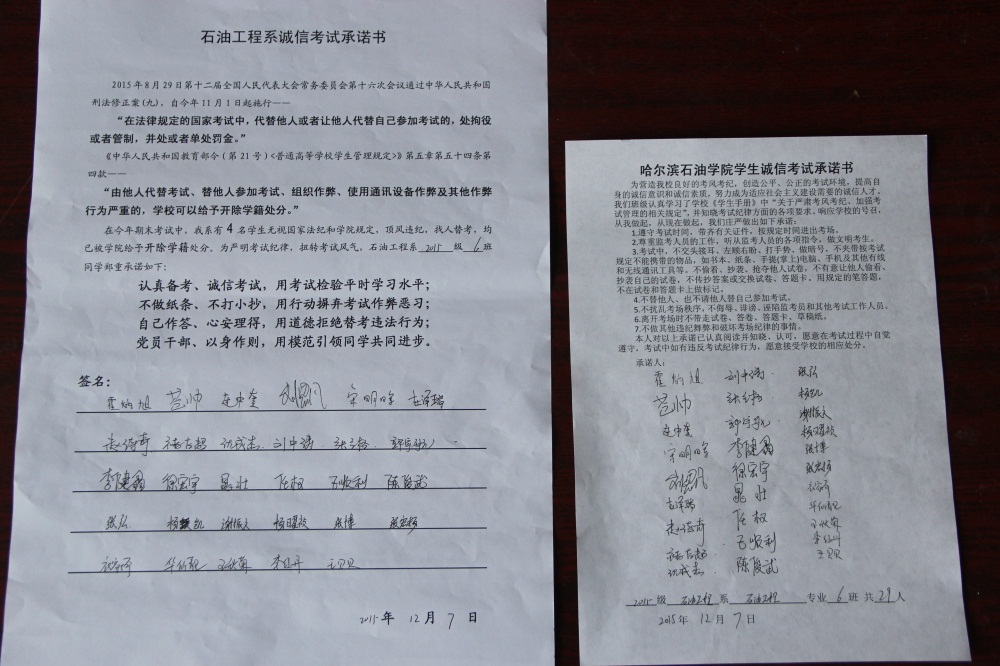 石油工程系诚信考试承诺书
2015年8月29日第十二届全国人民代表大会常务委员会第十六次会议通过中华人民共和国
刑法修正案(九),自今年11月1日起施行——
“在法律规定的国家考试中,代替他人或者让他人代替自己参加考试的,处拘役
或者管制,并处或者单处罚金。”
《中华人民共和国教育部令(第21号)<普通高等学校学生管理规定>》第五章第五十四条第
四款——
“由他人代替考试、替他人参加考试、组织作弊、使用通讯设备作弊及其他作弊
行为严重的,学校可以给予开除学籍处分。”
在今年期末考试中,我系有4名学生无视国家法纪和学院规定,顶风违纪,找人替考,均
已被学院给予开除学籍处分。为严明考试纪律,扭转考试风气,石油工程系 2015 级 6 班
同学郑重承诺如下:
认真备考、诚信考试,用考试检验平时学习水平;
不做纸条、不打小抄,用行动摒弃考试作弊恶习;
自己作答、心安理得,用道德拒绝替考违法行为;
党员干部、以身作则,用模范引领同学共同进步。
签名:
霍炳旭 范帅 宋明晗
刘中涛
李建鑫 徐宏宇 晁壮 任权 石顺利 陈俊武
杨凯 张博
2015年 12月 7日
哈尔滨石油学院学生诚信考试承诺书
为营造我校良好的考风考纪,创造公平、公正的考试环境,提高自
身的诚信意识和诚信素质,努力成为适应社会主义建设需要的诚信人才,
我们班级认真学习了学校《学生手册》中“关于严肃考风考纪、加强考
试管理的相关规定”,并知晓考试纪律方面的各项要求。响应学校的号召,
从我做起,从现在做起,我们庄严做出如下承诺:
1.遵守考试时间,带齐有关证件,按规定时间进出考场。
2.尊重监考人员的工作,听从监考人员的各项指令,做文明考生。
3.考试中,不交头接耳、左顾右盼、打手势、做暗号,不夹带按考试
规定不能携带的物品,如书本、纸条、手提(掌上)电脑、手机及其他有线
和无线通讯工具等。不偷看、抄袭、抢夺他人试卷,不有意让他人偷看、
抄袭自己的试卷,不传抄答案或交换试卷、答题卡、用规定的笔答题,
不在试卷和答题卡上做标记。
4.不替他人、也不请他人替自己参加考试。
5.不扰乱考场秩序,不侮辱、诽谤、诬陷监考员和其他考试工作人员。
6.离开考场时不带走试卷、答卷、答题卡、草稿纸。
7.不做其他违纪舞弊和破坏考场纪律的事情。
本人对以上承诺已认真阅读并知晓、认可,愿意在考试过程中自觉
遵守,考试中如有违反考试纪律行为,愿意接受学校的相应处分。
承诺人:
霍炳旭 刘中涛
范帅 杨凯
宋明晗 李建鑫 张博
徐宏宇
晁壮
任权
石顺利
陈俊武
2015级 石油工程 系 石油工程 专业 6 班 共 29 人
2015年 12月 7日